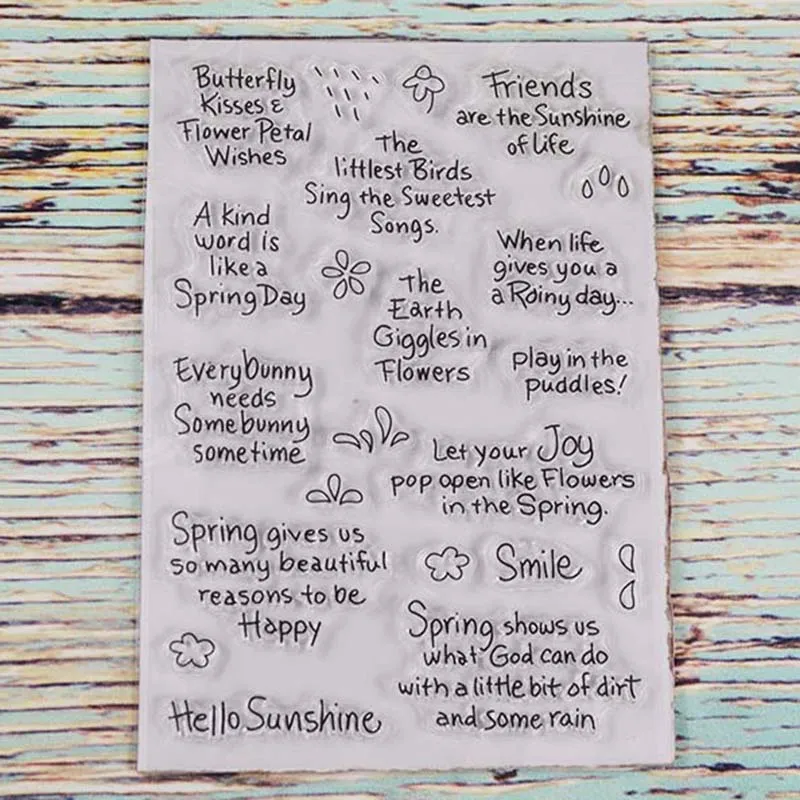 Butterfly
Kisses &
Flower Petal
Wishes
Friends
are the Sunshine
of Life
The
littlest Birds
Sing the Sweetest
Songs.
A kind
word is
like a
Spring Day
When life
gives you a
a Rainy day...
The
Earth
Giggles in
Flowers
play in the
puddles!
Everybunny
needs
Somebunny
sometime
Let your Joy
pop open like Flowers
in the Spring.
Spring gives us
so many beautiful
reasons to be
Happy
Smile
Spring shows us
what God can do
with a little bit of dirt
and some rain
Hello Sunshine